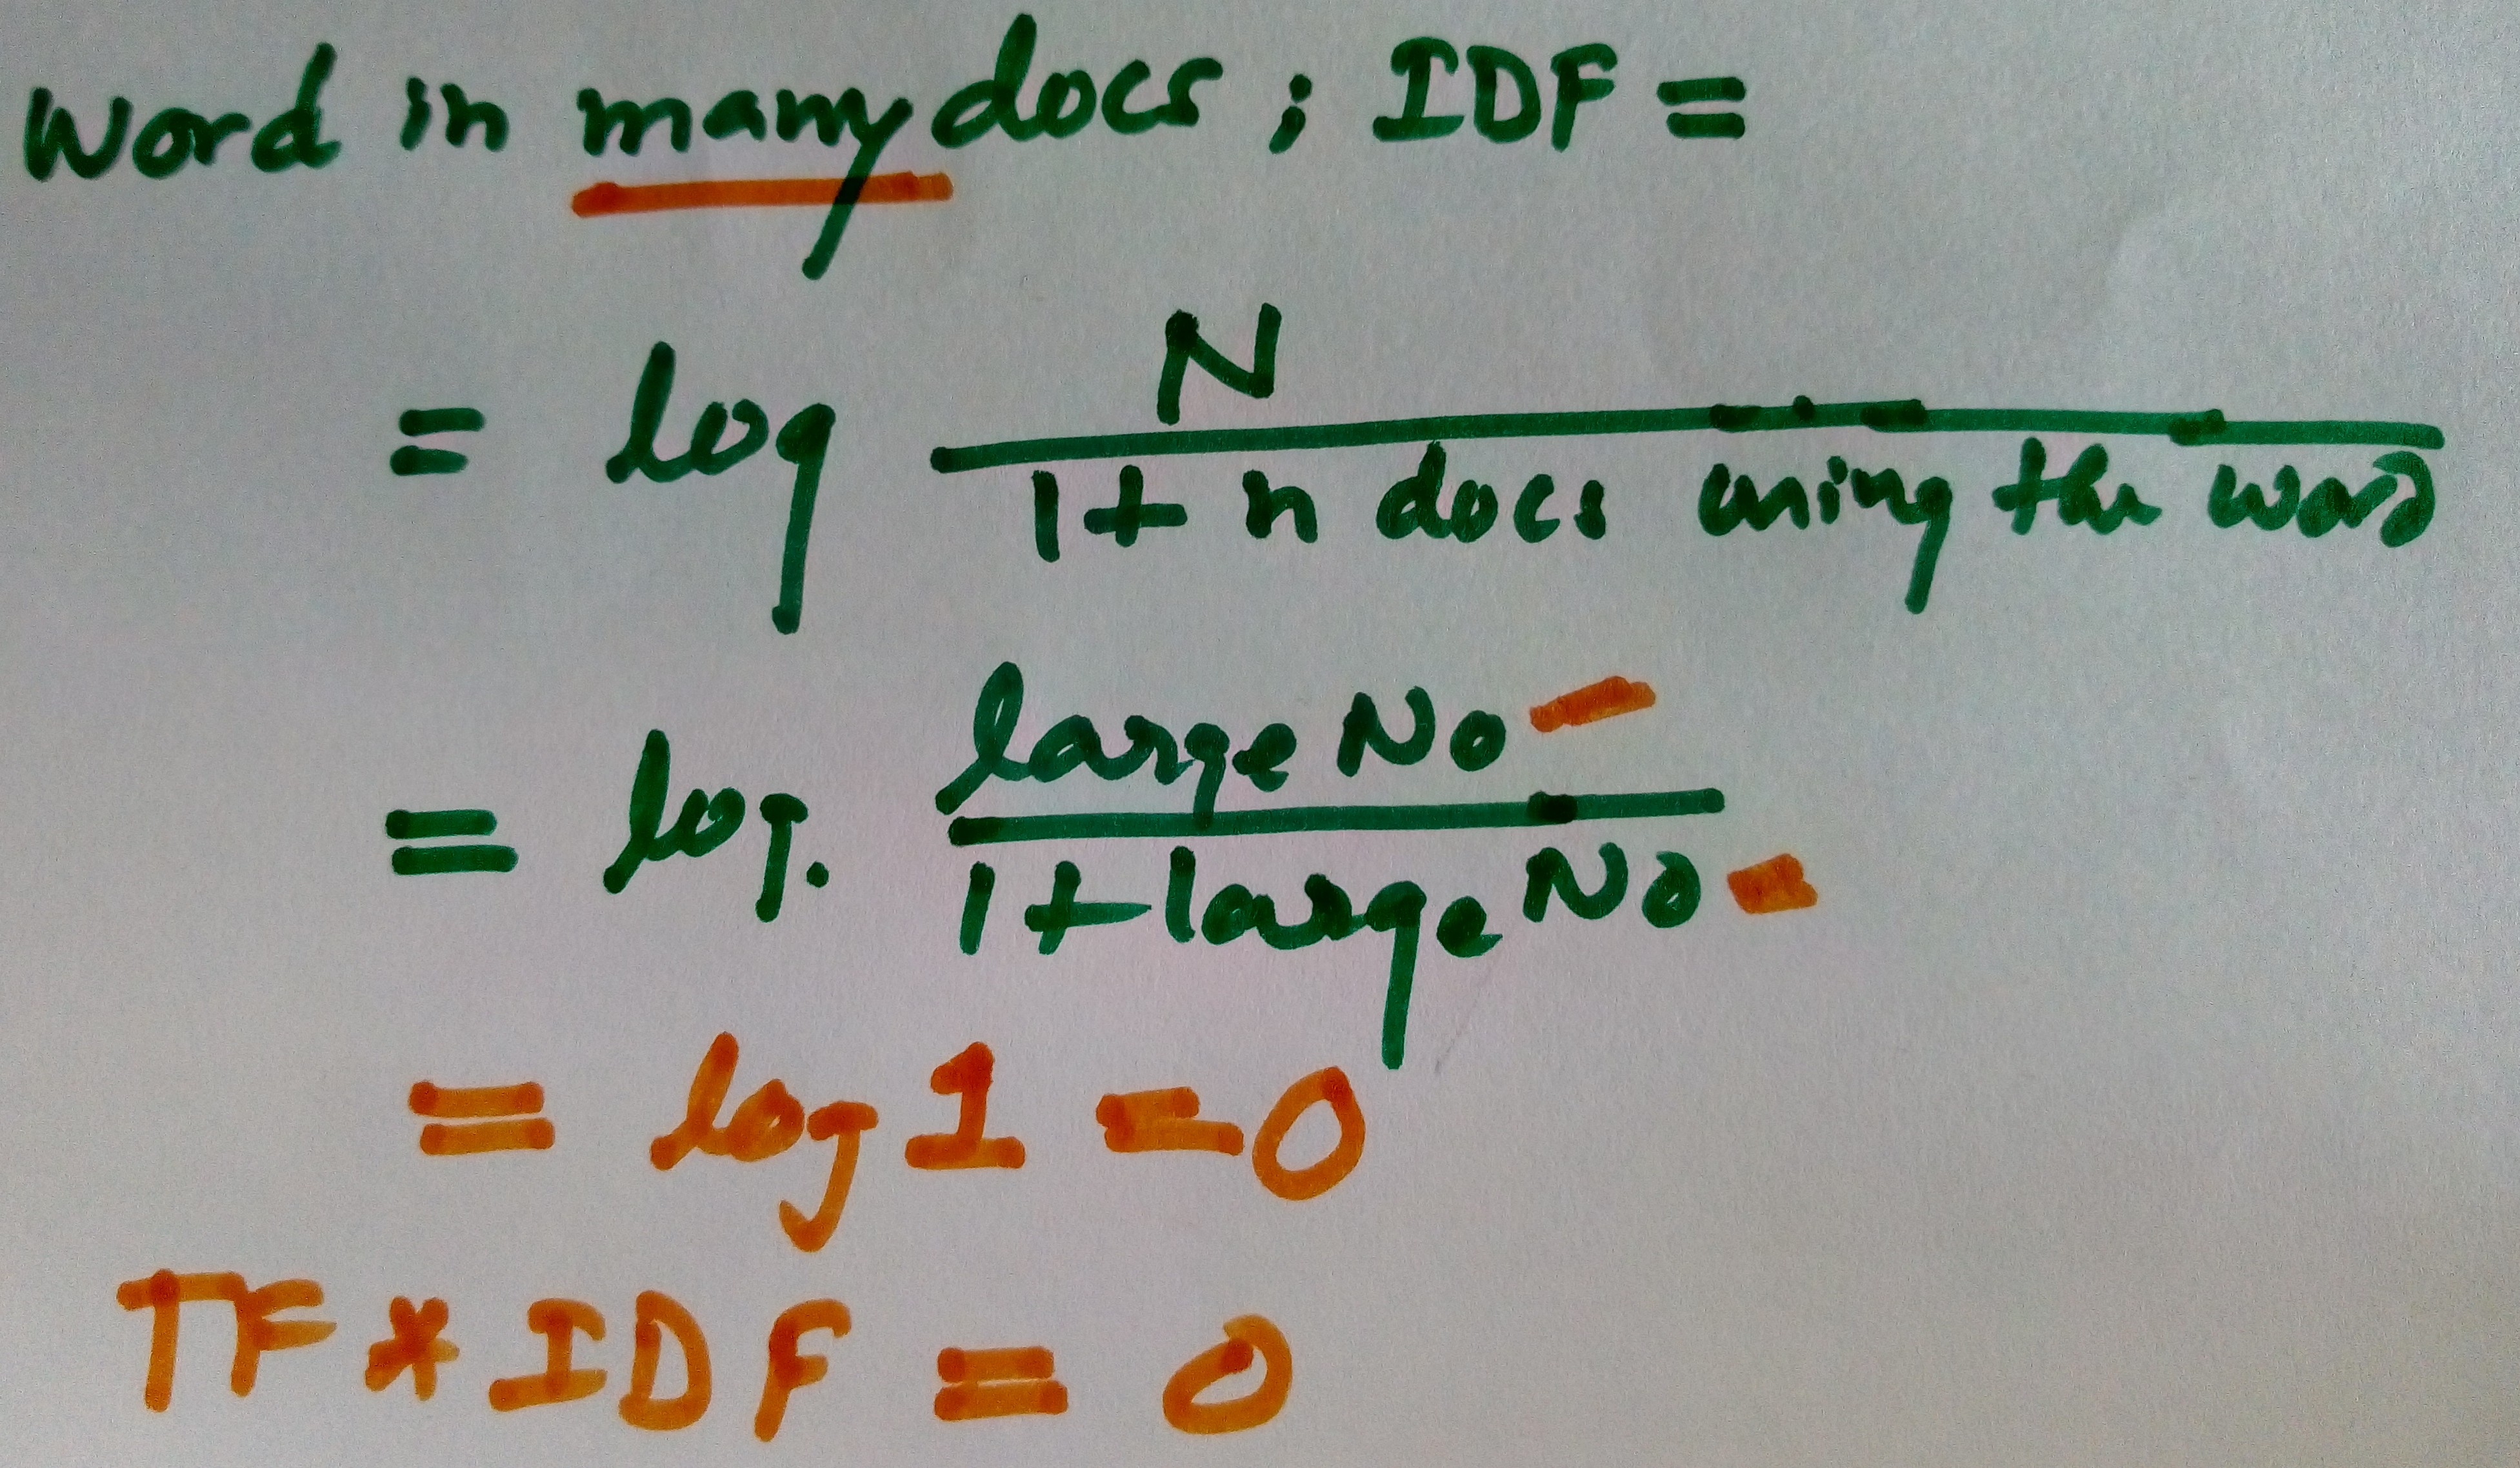 Word in many docs ; IDF =
= log N / 1 + n docs using the word
= log. large No / 1 + large No
= log 1 = 0
TF * IDF = 0